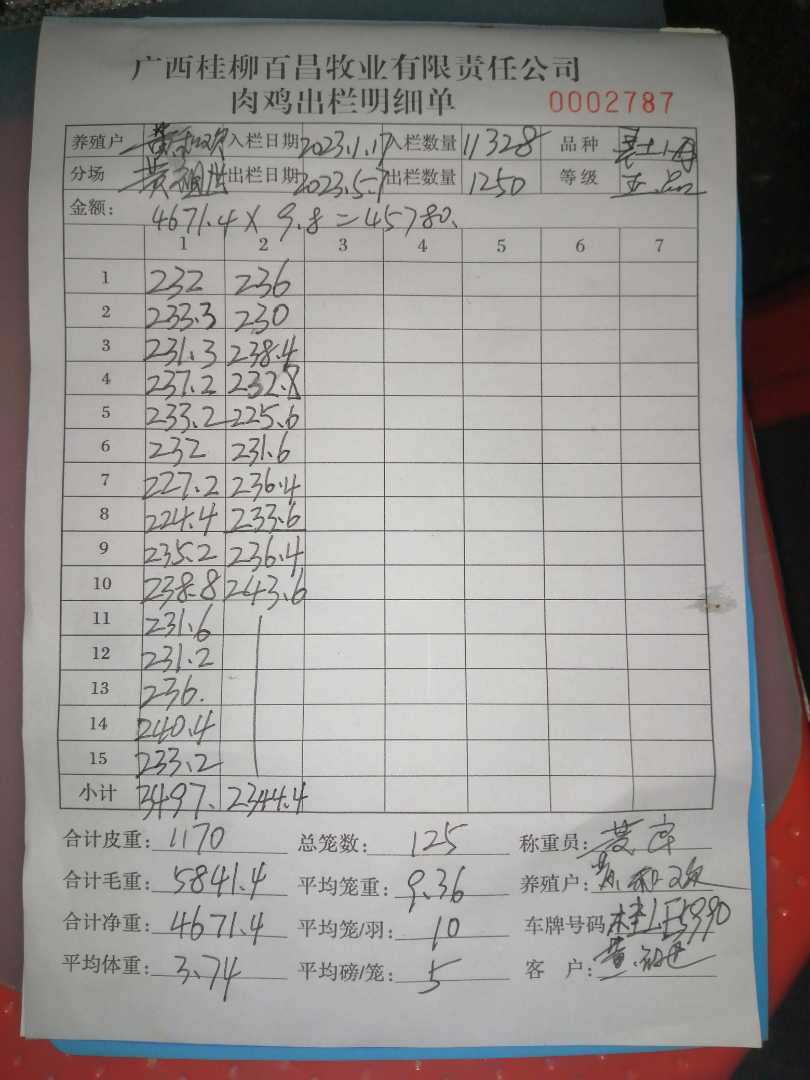 广西桂柳百昌牧业有限责任公司
肉鸡出栏明细单 0002787
养殖户 黄和欢 入栏日期 2023.1.17 入栏数量 11328 品种
分场 出栏日期 2023.5.7 出栏数量 1250 等级
金额: 4671.4 X 9.8 = 45780.
1 2 3 4 5 6 7
1 232 236
2 233.3 230
3 231.3 238.4
4 237.2 232.8
5 233.2 225.6
6 232 231.6
7 227.2 236.4
8 224.4 233.6
9 235.2 236.4
10 238.8 243.6
11 231.6
12 231.2
13 236.
14 240.4
15 233.2
小计 3497. 2344.4
合计皮重: 1170 总笼数: 125 称重员:
合计毛重: 5841.4 平均笼重: 9.36 养殖户: 黄和欢
合计净重: 4671.4 平均笼/羽: 10 车牌号码 桂LF5990
平均体重: 3.74 平均磅/笼: 5 客 户: